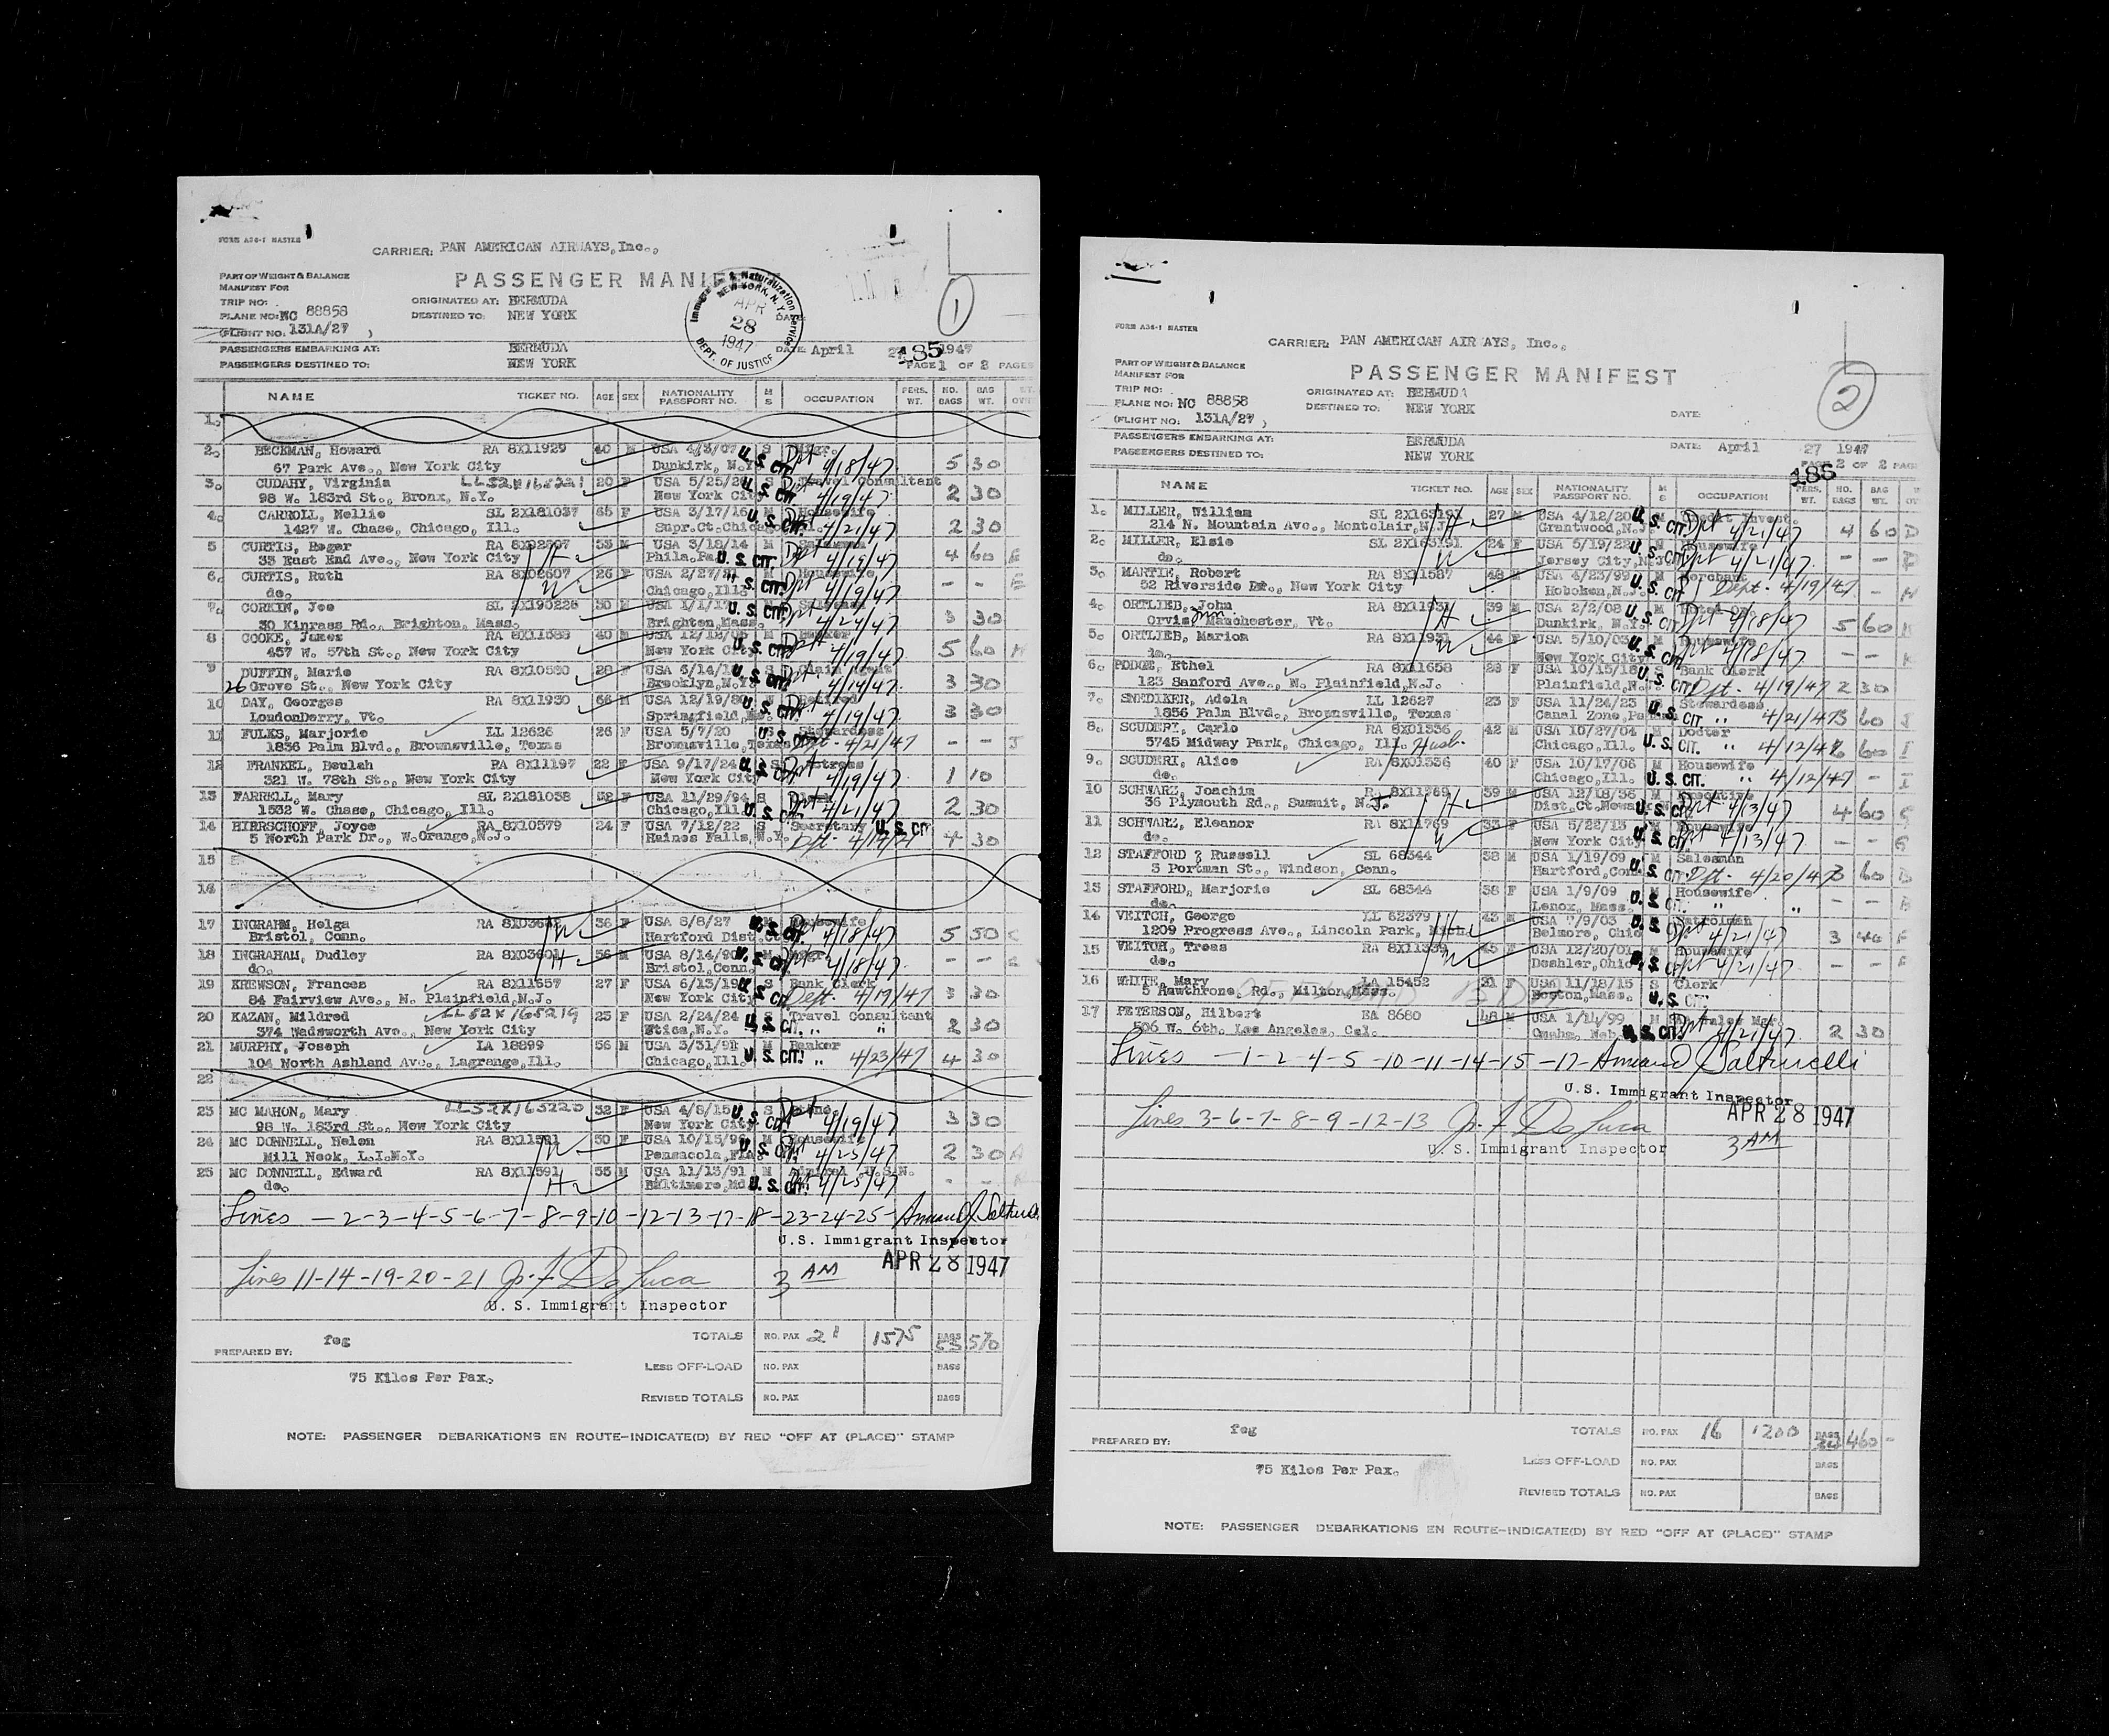 FORM A36-1 MASTER
CARRIER: PAN AMERICAN AIRWAYS, Inc.,
PART OF WEIGHT & BALANCE
MANIFEST FOR
PASSENGER MANIFEST
Immigration & Naturalization Service
NEW YORK, N.Y.
APR
28
1947
DEPT. OF JUSTICE
1
TRIP NO:
ORIGINATED AT: BERMUDA
PLANE NO: NC 88858
DESTINED TO: NEW YORK
DATE:
(FLIGHT NO. 131A/27 )
PASSENGERS EMBARKING AT: BERMUDA
DATE: April 27 1947
185
PASSENGERS DESTINED TO: NEW YORK
PAGE 1 OF 2 PAGES
NAME TICKET NO. AGE SEX NATIONALITY PASSPORT NO. M S OCCUPATION PERS. WT. NO. BAGS BAG WT.
1.
2. BECKMAN, Howard RA 8X11929 40 M USA 4/3/07 U.S. CIT. S Mgr. Dpt 4/18/47 5 30
67 Park Ave., New York City Dunkirk, N.Y.
3. CUDAHY, Virginia LL52X165221 20 F USA 5/25/26 U.S. CIT. S Travel Consultant 4/19/47 2 30
98 W. 183rd St., Bronx, N.Y. New York City
4. CARROLL, Nellie SL 2X181037 65 F USA 3/17/16 U.S. CIT. Housewife 4/21/47 2 30
1427 W. Chase, Chicago, Ill. Supr.Ct.Chicago
5 CURTIS, Roger RA 33 M USA 3/18/14 M Salesman Dpt 4/19/47 4 60 E
33 East End Ave., New York City H Phila,Pa. U.S. CIT.
6. CURTIS, Ruth RA 8X02607 26 F USA 2/27/21 M Housewife Dpt 4/19/47 - - E
do. W Chicago,Ill. S. CIT.
7. CORKIN, Joe SL 2X190228 30 M USA 1/1/17 U.S. CIT. Salesman 4/24/47 3 30
30 Kinross Rd., Brighton, Mass. Brighton,Mass.
8 COOKE, James RA 8X11588 40 M USA 12/12/06 M Banker 4/19/47 5 60 H
457 W. 57th St., New York City New York City U.S. CIT.
9 DUFFIN, Marie RA 8X10580 28 F USA 6/14/18 U.S. CIT. S Claim Agent 4/14/47 3 30
26 Grove St., New York City Brooklyn,N.Y.
10 DAY, Georges RA 8X11930 66 M USA 12/19/80 U.S. CIT. Retired 4/19/47 3 30
LondonDerry, Vt. Springfield,
11 FULKS, Marjorie LL 12626 26 F USA 5/7/20 S Stewardess Dpt. 4/21/47 - - J
1836 Palm Blvd., Brownsville, Texas Brownsville,Texas U.S. CIT.
12 FRANKEL, Beulah RA 8X11197 22 F USA 9/17/24 U.S. CIT. S Actress 4/19/47 1 10
321 W. 78th St., New York City New York City
13 FARRELL, Mary SL 2X181038 52 F USA 11/29/94 S Clerk Dpt 4/21/47 2 30
1532 W. Chase, Chicago, Ill. Chicago,Ill. U.S. CIT.
14 HIERSCHOFF, Joyce RA 8X10579 24 F USA 7/12/22 S Secretary U.S. CIT 4 30
5 North Park Dr., W.Orange,N.J. Haines Falls,N.Y. Dpt. 4/17/
15
16
17 INGRAHM, Helga RA 36 F USA 8/8/27 U.S. CIT. Housewife 4/18/47 5 50 C
Bristol, Conn. W Hartford Dist.Ct
18 INGRAHAM, Dudley RA 8X03601 56 M USA 8/14/90 U.S. CIT. Mgr. 4/18/47 - -
do. H Bristol,Conn.
19 KREWSON, Frances RA 8X11657 27 F USA 6/13/19 U.S. CIT S Bank Clerk 3 30
84 Fairview Ave., N. Plainfield,N.J. New York City Dept. 4/19/47
20 KAZAN, Mildred LL52X165219 23 F USA 2/24/24 S Travel Consultant 2 30
374 Wadsworth Ave., New York City Utica,N.Y. U.S. CIT. " "
21 MURPHY, Joseph LA 18899 56 M USA 3/31/91 M Banker 4 30
104 North Ashland Ave., Lagrange,Ill. Chicago,Ill. U.S. CIT. " 4/23/47
22
23 MC MAHON, Mary LL52X165220 32 F USA 4/8/15 U.S. CIT. S 4/19/47 3 30
98 W. 183rd St., New York City New York City
24 MC DONNELL, Helen RA 8X11591 50 F USA 10/15/96 M Housewife 4/25/47 2 30 A
Mill Neck, L.I.N.Y. W Pensacola,Fla. U.S. CIT.
25 MC DONNELL, Edward RA 8X11591 55 M USA 11/13/91 M Admiral U.S.N. - -
do. H Baltimore,Md. U.S. CIT. 4/25/47
Lines - 2-3-4-5-6-7-8-9-10-12-13-17-18-23-24-25-
U.S. Immigrant Inspector
APR 28 1947
Lines 11-14-19-20-21 J. F. DeLuca 3 AM
U. S. Immigrant Inspector
PREPARED BY: feg
TOTALS NO. PAX 21 1575 BAGS 570
LESS OFF-LOAD NO. PAX BAGS
75 Kilos Per Pax.
REVISED TOTALS NO. PAX BAGS
NOTE: PASSENGER DEBARKATIONS EN ROUTE-INDICATE(D) BY RED "OFF AT (PLACE)" STAMP
FORM A36-1 MASTER
CARRIER: PAN AMERICAN AIRWAYS, Inc.,
PART OF WEIGHT & BALANCE
MANIFEST FOR
PASSENGER MANIFEST
2
TRIP NO:
ORIGINATED AT: BERMUDA
PLANE NO: NC 88858
DESTINED TO: NEW YORK
DATE:
(FLIGHT NO: 131A/27 )
PASSENGERS EMBARKING AT: BERMUDA
DATE: April 27 1947
PASSENGERS DESTINED TO: NEW YORK
PAGE 2 OF 2 PAGE
185
NAME TICKET NO. AGE SEX NATIONALITY PASSPORT NO. M S OCCUPATION PERS. WT. NO. BAGS BAG WT.
1. MILLER, William SL 2X163191 27 M USA 4/12/20 U.S. CIT. 4/21/47 4 60 D
214 N. Mountain Ave., Montclair,N.J. H Grantwood,N.J.
2. MILLER, Elsie SL 2X163191 24 F USA 5/19/22 U.S. CIT. Housewife Dpt 4/21/47 - -
do. W Jersey City,N.J.
3. MARTIE, Robert RA 8X11587 48 M USA 4/23/99 U.S. CIT Merchant Dept. 4/19/47 - H
52 Riverside Dr., New York City Hoboken,N.J.
4. ORTLIEB, John RA 8X11931 39 M USA 2/2/08 U.S. CIT. M Hotel Dpt 4/18/47 5 60 K
Orvis Manchester, Vt. H Dunkirk, N.Y.
5. ORTLIEB, Marion RA 8X11931 44 F USA 5/10/03 U.S. CIT. Housewife 4/18/47 - - K
do. W New York City
6. PODGE, Ethel RA 8X11658 28 F USA 10/15/18 U.S. CIT. S Bank Clerk
123 Sanford Ave., N. Plainfield,N.J. Plainfield,N.J. Dpt. 4/19/47 2 30
7. SNEDIKER, Adela LL 12627 23 F USA 11/24/23 Stewardess
1856 Palm Blvd., Brownsville, Texas Canal Zone, U.S. CIT " 4/21/47 3 60 J
8. SCUDERI, Carlo RA 8X01336 42 M USA 10/27/04 M Doctor
5745 Midway Park, Chicago, Ill. Husb. Chicago,Ill. U.S. CIT. " 4/12/47 60 I
9. SCUDERI, Alice RA 8X01336 40 F USA 10/17/06 M Housewife
do. Chicago,Ill. U.S. CIT. " 4/12/47 - I
10 SCHWARZ, Joachim RA 8X11769 59 M USA 12/18/36 M Executive Dpt 4/13/47 4 60 G
36 Plymouth Rd., Summit, N.J. H Dist.Ct.Newark U.S. CIT.
11 SCHWARZ, Eleanor RA 8X11769 33 F USA 5/22/13 M Housewife Dpt 4/13/47 - - G
do. W New York City U.S. CIT.
12 STAFFORD, Russell SL 68344 38 M USA 1/19/09 M Salesman
3 Portman St., Windson, Conn. Hartford,Conn. U.S. CIT. Dpt. 4/20/47 3 60 B
13 STAFFORD, Marjorie SL 68344 38 F USA 1/9/09 M Housewife
do. Lenox, Mass. U.S. CIT. " " - - B
14 VEITCH, George LL 62379 43 M USA 7/9/03 U.S. Patrolman 4/21/47 3 40 F
1209 Progress Ave., Lincoln Park, Mich. H Belmore, Ohio
15 VEITCH, Treas RA 8X11339 45 F USA 12/20/01 M Housewife - - F
do. W Deshler,Ohio U.S. CIT Dpt 4/21/47
16 WHITE, Mary LA 15452 31 F USA 11/18/15 S Clerk
5 Hawthrone, Rd., Milton,Mass. Boston,Mass. U.S. CIT.
17 PETERSON, Hilbert EA 8680 48 M USA 1/14/99 M Sales Mgr. 4/21/47 2 30
506 W. 6th. Los Angeles, Cal. Omaha, Neb. U.S. CIT.
Lines -1-2-4-5-10-11-14-15-17-
U.S. Immigrant Inspector
APR 28 1947
Lines 3-6-7-8-9-12-13 J. F. DeLuca
U. S. Immigrant Inspector
3 AM
PREPARED BY: feg
TOTALS NO. PAX 16 1200 BAGS 460 -
LESS OFF-LOAD NO. PAX BAGS
75 Kilos Per Pax.
REVISED TOTALS NO. PAX BAGS
NOTE: PASSENGER DEBARKATIONS EN ROUTE-INDICATE(D) BY RED "OFF AT (PLACE)" STAMP